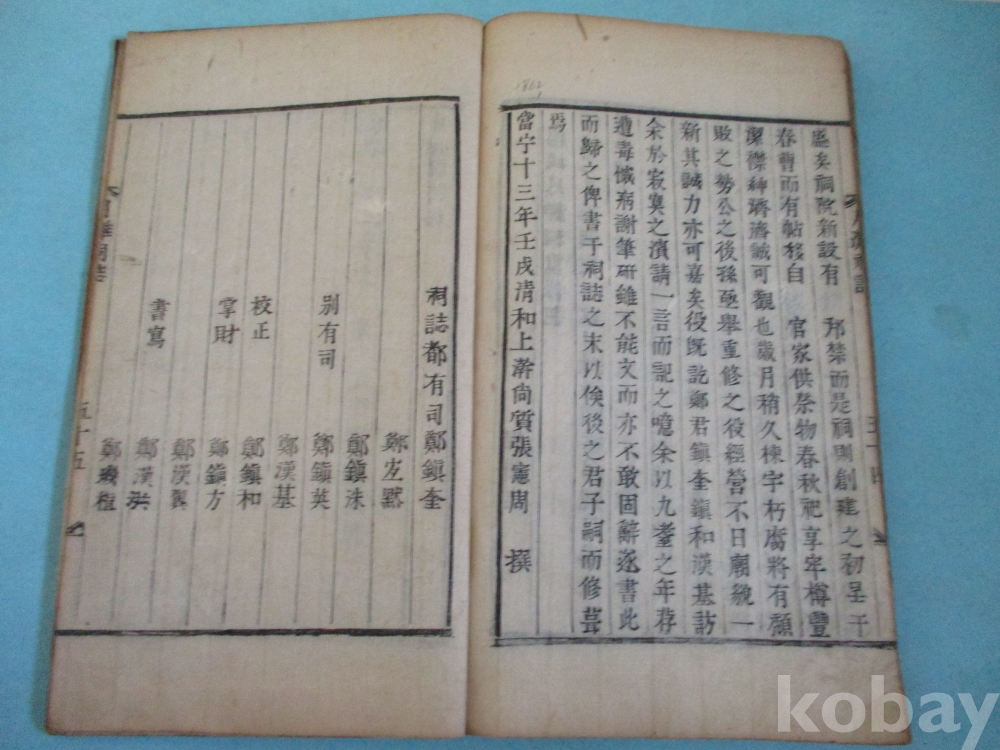 1862
盛矣祠院新設有 邦禁而是祠則創建之初呈于
春曹而有帖移自 官家供祭物春秋祀享牢樽豐
潔襟紳濟濟誠可觀也歲月稍久棟宇朽腐將有頹
敗之勢公之後孫亟舉重修之役經營不日廟貌一
新其誠力亦可嘉矣役旣訖鄭君鎭奎鎭和漢基訪
余於寂寞之濱請一言而記之噫余以九耋之年荐
遭毒慽病謝筆硏雖不能文而亦不敢固辭遂書此
而歸之俾書于祠誌之末以俟後之君子嗣而修葺
焉
當宁十三年壬戌淸和上澣尙質張憲周 撰
祠誌都有司鄭鎭奎
鄭左默
鄭鎭洙
別有司 鄭鎭英
鄭漢基
校正 鄭鎭和
掌財 鄭鎭方
鄭漢翼
書寫 鄭漢洪
鄭璣植
五十五
kobay